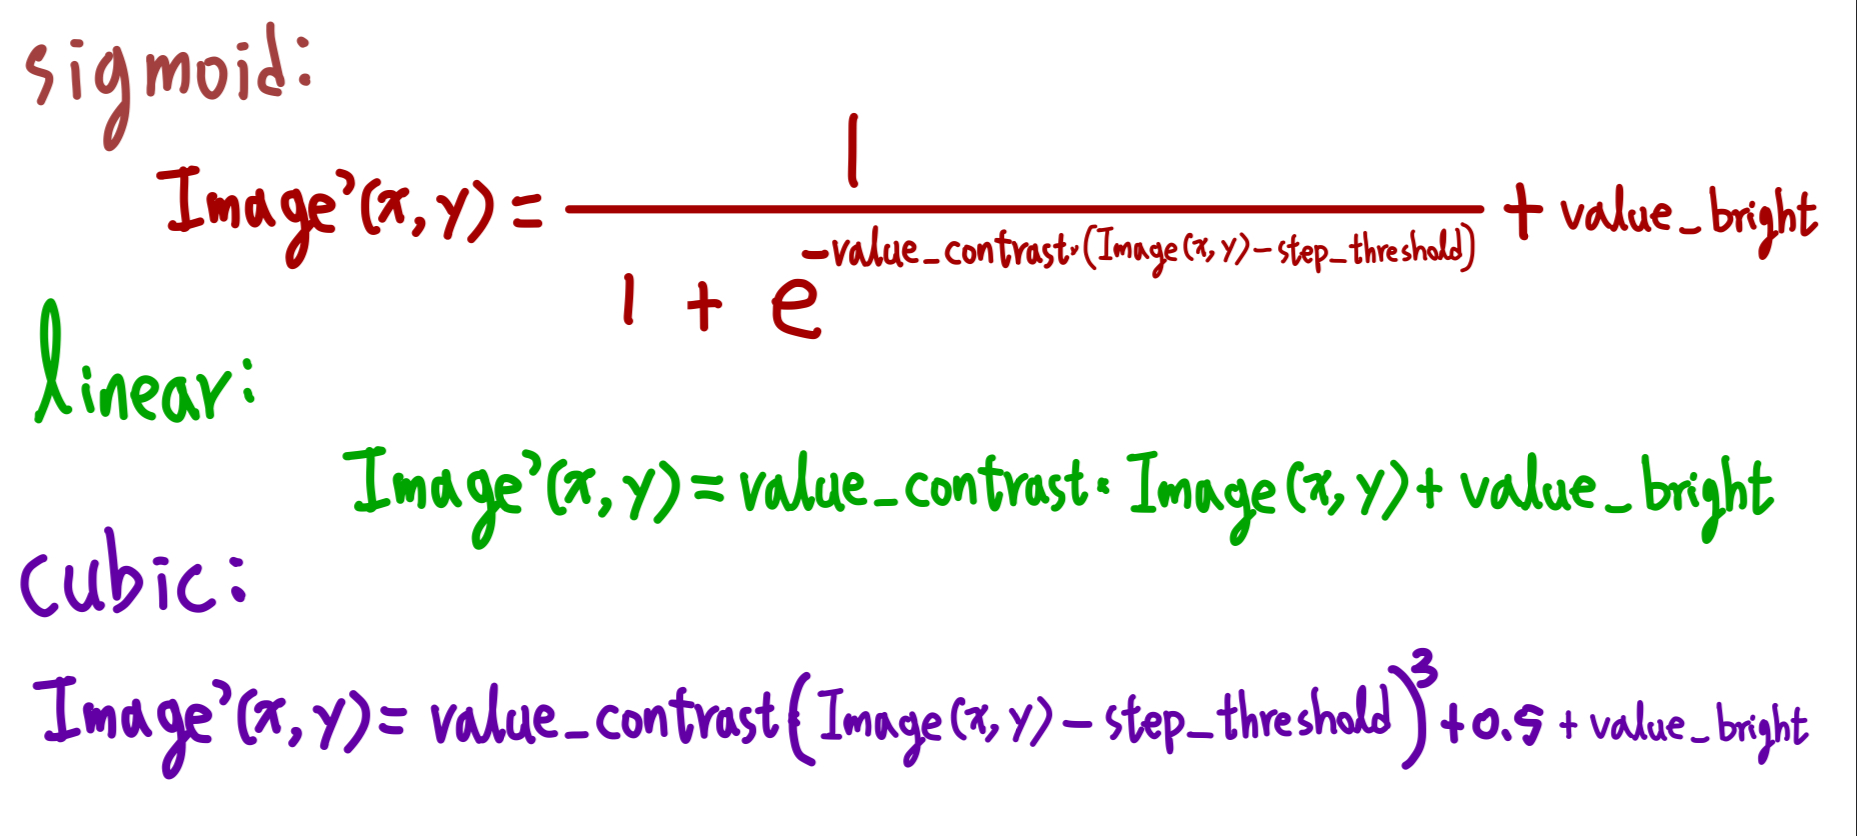 sigmoid:
Image'(x,y) = 1 / (1 + e^(-value_contrast·(Image(x,y)-step_threshold))) + value_bright
linear:
Image'(x,y) = value_contrast · Image(x,y) + value_bright
cubic:
Image'(x,y) = value_contrast·(Image(x,y) - step_threshold)^3 + 0.5 + value_bright